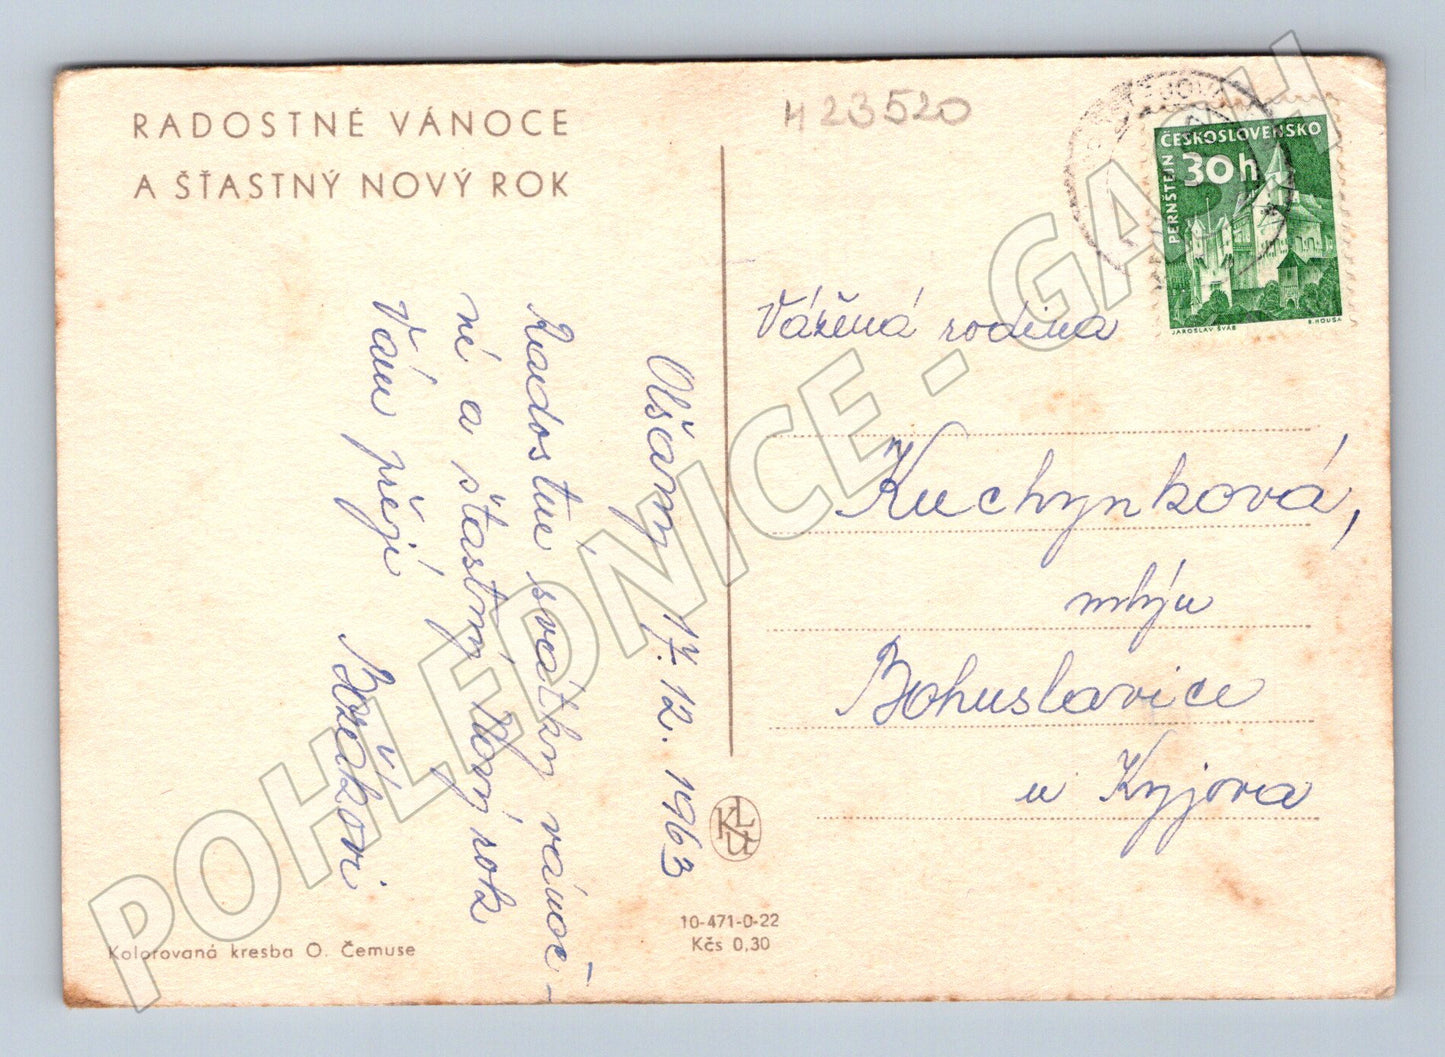 RADOSTNÉ VÁNOCE
A ŠŤASTNÝ NOVÝ ROK
H 23520
ČESKOSLOVENSKO
30h
PERNŠTEJN
JAROSLAV ŠVÁB
B. HOUSA
Olšany 17. 12. 1963
Radostné svátky vánoč-
ní a šťastný Nový rok
Vám přejí
Vážená rodina
Kuchynková,
mlýn
Bohuslavice
u Kyjova
KLU
10-471-0-22
Kčs 0,30
Kolorovaná kresba O. Čemuse
POHLEDNICE - GAGU